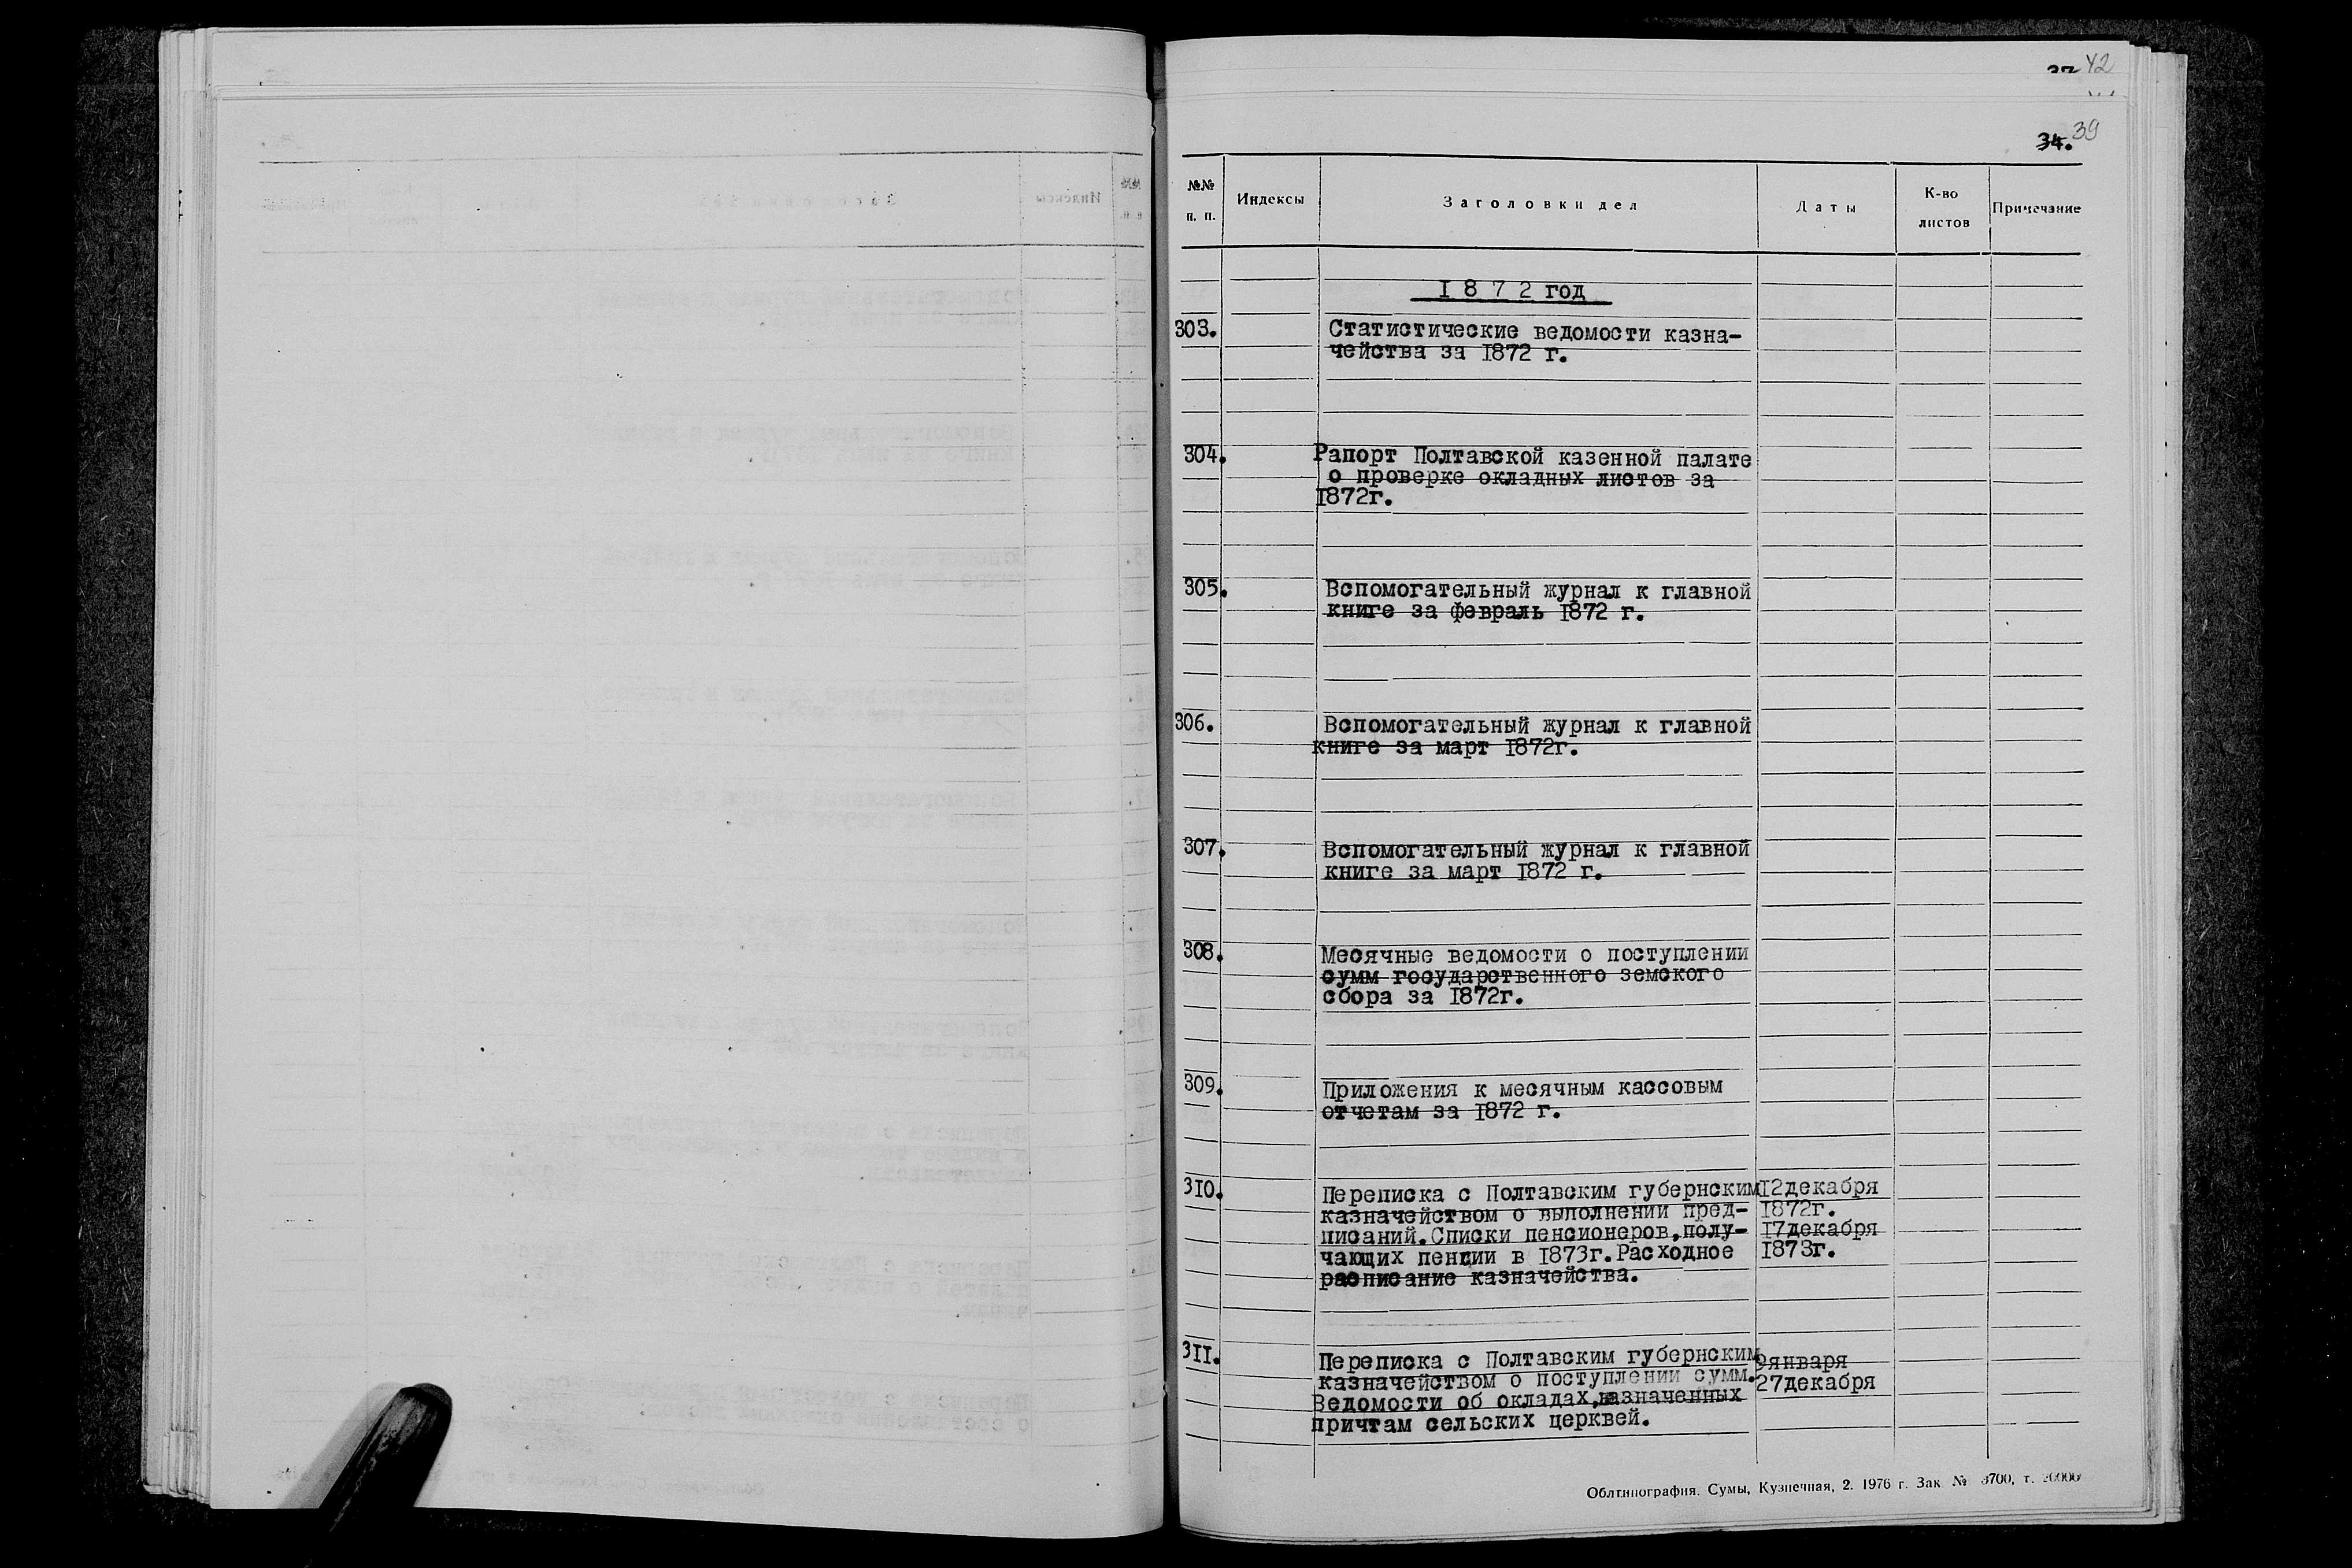 42
34. 39
№№ п. п. Индексы Заголовки дел Даты К-во листов Примечание
1872 год
303. Статистические ведомости казна-
чейства за 1872 г.
304. Рапорт Полтавской казенной палате
о проверке окладных листов за
1872г.
305. Вспомогательный журнал к главной
книге за февраль 1872 г.
306. Вспомогательный журнал к главной
книге за март 1872г.
307. Вспомогательный журнал к главной
книге за март 1872 г.
308. Месячные ведомости о поступлении
сумм государственного земского
сбора за 1872г.
309. Приложения к месячным кассовым
отчетам за 1872 г.
310. Переписка с Полтавским губернским 12декабря
казначейством о выполнении пред- 1872г.
писаний.Списки пенсионеров,полу- 17декабря
чающих пенсии в 1873г.Расходное 1873г.
расписание казначейства.
311. Переписка с Полтавским губернским 9января
казначейством о поступлении сумм. 27декабря
Ведомости об окладах,назначенных
причтам сельских церквей.
Облтипография. Сумы, Кузнечная, 2. 1976 г. Зак. №